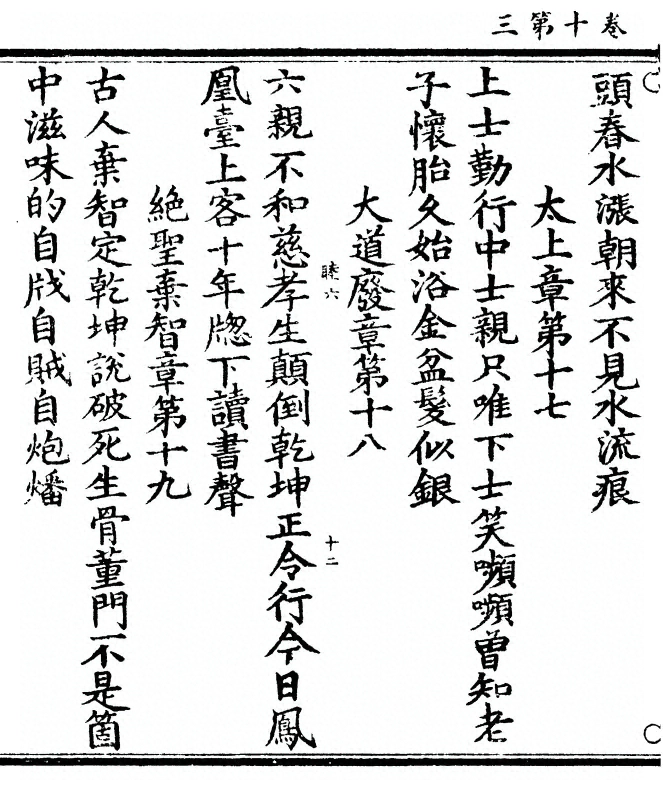 三第十卷
頭春水漲朝來不見水流痕
太上章第十七
上士勤行中士親只唯下士笑嚬嚬曾知老
子懷胎久始浴金盆髮似銀
大道廢章第十八
睦六
十二
六親不和慈孝生顛倒乾坤正令行今日鳳
凰臺上客十年牎下讀書聲
絕聖棄智章第十九
古人棄智定乾坤說破死生骨董門不是箇
中滋味的自戕自賊自炮燔